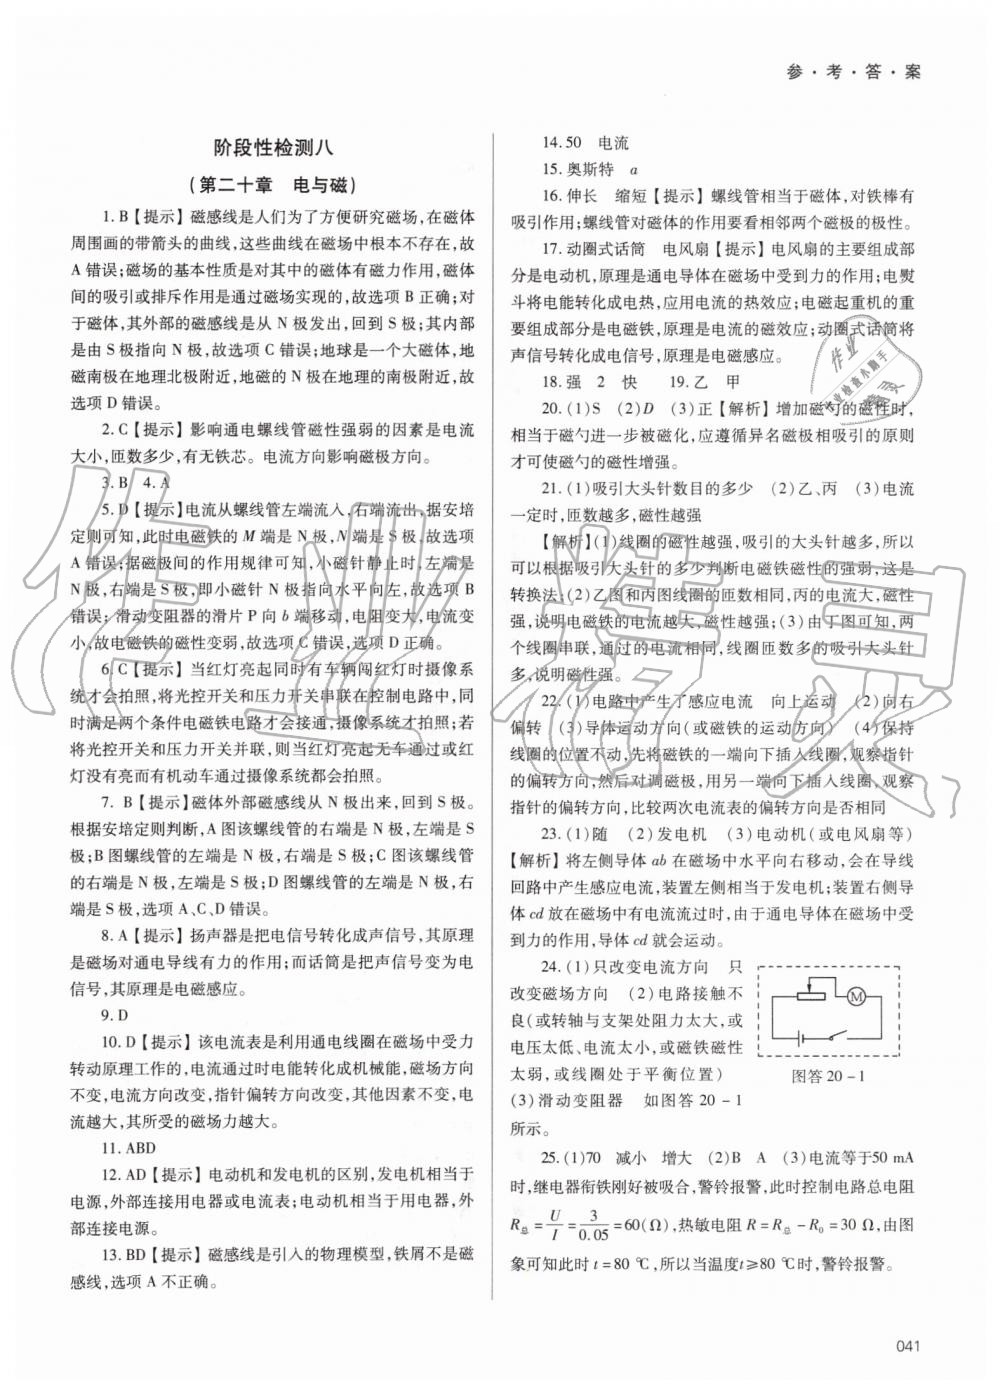 参·考·答·案
阶段性检测八
(第二十章　电与磁)
1. B【提示】磁感线是人们为了方便研究磁场,在磁体
周围画的带箭头的曲线,这些曲线在磁场中根本不存在,故
A 错误;磁场的基本性质是对其中的磁体有磁力作用,磁体
间的吸引或排斥作用是通过磁场实现的,故选项 B 正确;对
于磁体,其外部的磁感线是从 N 极发出,回到 S 极;其内部
是由 S 极指向 N 极,故选项 C 错误;地球是一个大磁体,地
磁南极在地理北极附近,地磁的 N 极在地理的南极附近,故
选项 D 错误。
2. C【提示】影响通电螺线管磁性强弱的因素是电流
大小,匝数多少,有无铁芯。电流方向影响磁极方向。
3. B　4. A
5. D【提示】电流从螺线管左端流入,右端流出,据安培
定则可知,此时电磁铁的 M 端是 N 极,N 端是 S 极,故选项
A 错误;据磁极间的作用规律可知,小磁针静止时,左端是
N 极,右端是 S 极,即小磁针 N 极指向水平向左,故选项 B
错误;滑动变阻器的滑片 P 向 b 端移动,电阻变大,电流变
小,故电磁铁的磁性变弱,故选项 C 错误,选项 D 正确。
6. C【提示】当红灯亮起同时有车辆闯红灯时摄像系
统才会拍照,将光控开关和压力开关串联在控制电路中,同
时满足是两个条件电磁铁电路才会接通,摄像系统才拍照;若
将光控开关和压力开关并联,则当红灯亮起无车通过或红
灯没有亮而有机动车通过摄像系统都会拍照。
7. B【提示】磁体外部磁感线从 N 极出来,回到 S 极。
根据安培定则判断,A 图该螺线管的右端是 N 极,左端是 S
极;B 图螺线管的左端是 N 极,右端是 S 极;C 图该螺线管
的右端是 N 极,左端是 S 极;D 图螺线管的左端是 N 极,右
端是 S 极,选项 A、C、D 错误。
8. A【提示】扬声器是把电信号转化成声信号,其原理
是磁场对通电导线有力的作用;而话筒是把声信号变为电
信号,其原理是电磁感应。
9. D
10. D【提示】该电流表是利用通电线圈在磁场中受力
转动原理工作的,电流通过时电能转化成机械能,磁场方向
不变,电流方向改变,指针偏转方向改变,其他因素不变,电
流越大,其所受的磁场力越大。
11. ABD
12. AD【提示】电动机和发电机的区别,发电机相当于
电源,外部连接用电器或电流表;电动机相当于用电器,外
部连接电源。
13. BD【提示】磁感线是引入的物理模型,铁屑不是磁
感线,选项 A 不正确。
14. 50　电流
15. 奥斯特　a
16. 伸长　缩短【提示】螺线管相当于磁体,对铁棒有
吸引作用;螺线管对磁体的作用要看相邻两个磁极的极性。
17. 动圈式话筒　电风扇【提示】电风扇的主要组成部
分是电动机,原理是通电导体在磁场中受到力的作用;电熨
斗将电能转化成电热,应用电流的热效应;电磁起重机的重
要组成部分是电磁铁,原理是电流的磁效应;动圈式话筒将
声信号转化成电信号,原理是电磁感应。
18. 强　2　快　19. 乙　甲
20. (1)S　(2)D　(3)正【解析】增加磁勺的磁性时,
相当于磁勺进一步被磁化,应遵循异名磁极相吸引的原则
才可使磁勺的磁性增强。
21. (1)吸引大头针数目的多少　(2)乙、丙　(3)电流
一定时,匝数越多,磁性越强
【解析】(1)线圈的磁性越强,吸引的大头针越多,所以
可以根据吸引大头针的多少判断电磁铁磁性的强弱,这是
转换法;(2)乙图和丙图线圈的匝数相同,丙的电流大,磁性
强,说明电磁铁的电流越大,磁性越强;(3)由丁图可知,两
个线圈串联,通过的电流相同,线圈匝数多的吸引大头针
多,说明磁性强。
22. (1)电路中产生了感应电流　向上运动　(2)向右
偏转　(3)导体运动方向(或磁铁的运动方向)　(4)保持
线圈的位置不动,先将磁铁的一端向下插入线圈,观察指针
的偏转方向,然后对调磁极,用另一端向下插入线圈,观察
指针的偏转方向,比较两次电流表的偏转方向是否相同
23. (1)随　(2)发电机　(3)电动机(或电风扇等)
【解析】将左侧导体 ab 在磁场中水平向右移动,会在导线
回路中产生感应电流,装置左侧相当于发电机;装置右侧导
体 cd 放在磁场中有电流流过时,由于通电导体在磁场中受
到力的作用,导体 cd 就会运动。
24. (1)只改变电流方向　只
改变磁场方向　(2)电路接触不
良(或转轴与支架处阻力太大,或
电压太低、电流太小,或磁铁磁性
太弱,或线圈处于平衡位置)
(3)滑动变阻器　如图答 20-1
所示。
M
图答 20-1
25. (1)70　减小　增大　(2)B　A　(3)电流等于50 mA
时,继电器衔铁刚好被吸合,警铃报警,此时控制电路总电阻
R总=U/I=3/0.05=60(Ω),热敏电阻 R=R总-R0=30 Ω,由图
象可知此时 t=80 ℃,所以当温度t≥80 ℃时,警铃报警。
041
作业精灵
作业
作业检查小助手
精灵